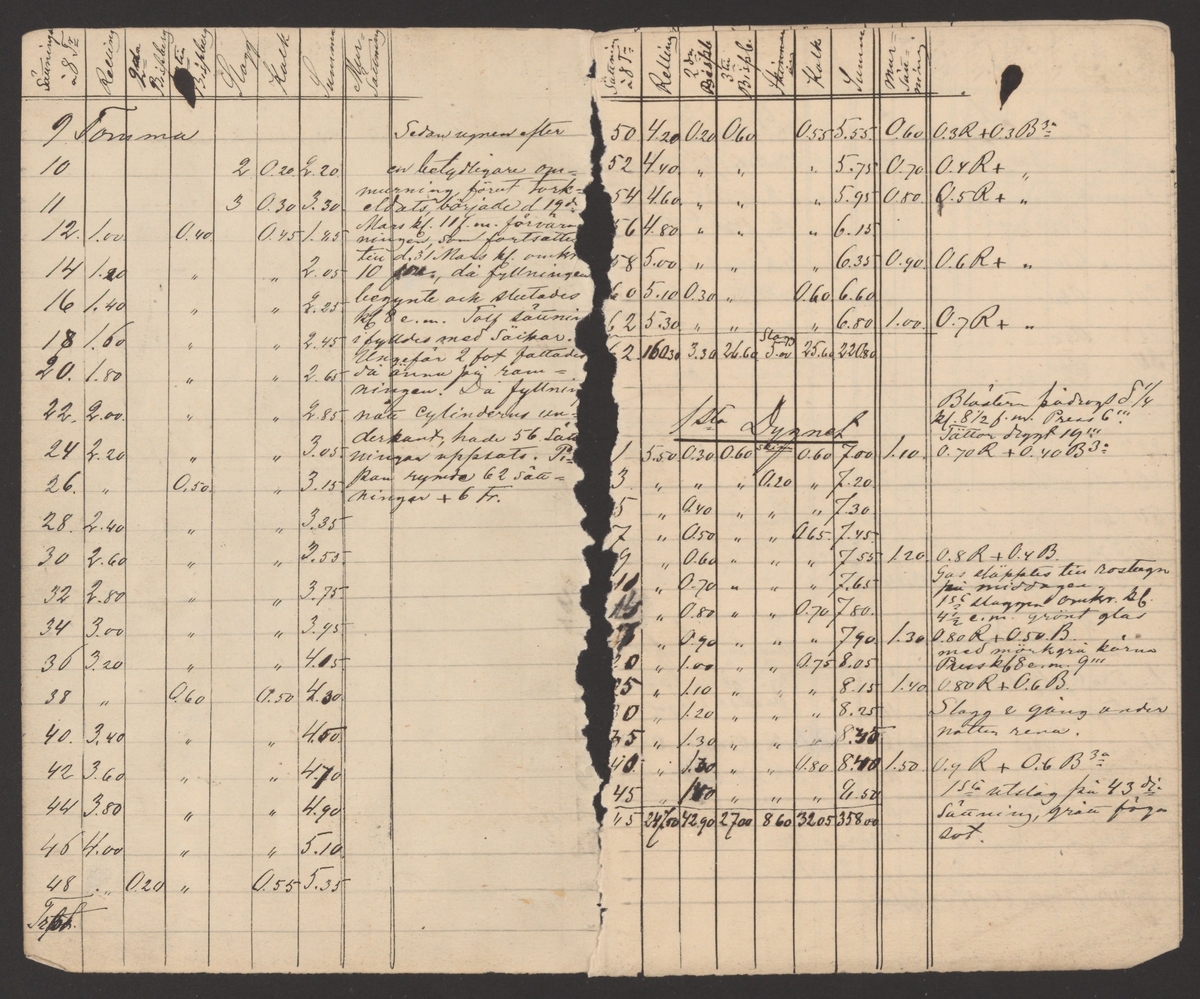 Sättning à 8 Tr Relling 2dra Bispberg 3tie Bispberg Slagg Kalk Summa Mur-Sättning
9 Tomma
10 2 0.20 2.20
11 3 0.30 3.30
12. 1.00 0.40 0.45 1.85
14 1.20 " " 2.05
16 1.40 " " 2.25
18 1.60 " " 2.45
20. 1.80 " " 2.65
22. 2.00 " " 2.85
24 2.20 " " 3.05
26. " 0.50 " 3.15
28. 2.40 " " 3.35
30 2.60 " " 3.55
32 2.80 " " 3.75
34 3.00 " " 3.95
36 3.20 " " 4.15
38 " 0.60 0.50 4.30
40. 3.40 " " 4.50
42 3.60 " " 4.70
44 3.80 " " 4.90
46 4.00 " " 5.10
48 " 0.20 " 0.55 5.35
Sedan ugnen efter
en betydligare om=
murning, förut tork=
eldats, började d 19de
Mars kl. 11 f.m. förvärm
ningen, som fortsattes
till d. 31 Mars kl. omkr.
10 , då fyllningen
begynte och slutades
kl 8 e.m. Tolf sättnin
ifylldes med
Ungefär 2 fot fattades
då ännu på ram=
ningen. Då fyllnin
nått cylinderns un=
derkant, hade 56 Sätt
ningar uppsats. Pi=
pan rymde 62 Sätt=
ningar + 6 Tr.
Sättning à 8 Tr Relling 2dra Bispb 3tie Bispb. Kalk Summa Mur=Sätt=ning
50 4.20 0.20 0.60 0.55 5.55 0.60 0.3 R + 0.3 B 3a
52 4.40 " " " 5.75 0.70 0.4 R + "
54 4.60 " " " 5.95 0.80 0.5 R + "
56 4.80 " " " 6.15
58 5.00 " " " 6.35 0.90 0.6 R + "
60 5.10 0.30 " 0.60 6.60
62 5.30 " " " 6.80 1.00 0.7 R + "
Slagg
62 160.30 3.30 26.60 5.00 25.60 220.80
1sta Dygnet
Blästern pådrogs d 1/4
kl. 8 1/2 f.m. Press 6'''
Tättor drygt 19'''
1 5.50 0.30 0.60 0.60 7.00 1.10 0.70 R + 0.40 B 3a
3 " " " 0.20 " 7.20
5 " 0.40 " " " 7.30
7 " 0.50 " " 0.65 7.45
9 " 0.60 " " " 7.55 1.20 0.8 R + 0.4 B
10 " 0.70 " " " 7.65
Gas släpptes till rostugn
på middagen
15 " 0.80 " " 0.70 7.80
1sta slaggen omkr. kl.
4 1/2 e.m. grönt glas
" 0.90 " " " 7.90 1.30 0.80 R + 0.50 B
med mörkgrå kärna
20 " 1.00 " " 0.75 8.05
Press kl 8 e.m. 9'''
25 " 1.10 " " " 8.15 1.40 0.80 R + 0.6 B
30 " 1.20 " " " 8.25
Slagg 2 gång under
natten rena.
35 " 1.30 " " " 8.35
40 " 1.30 " " 0.80 8.40 1.50 0.9 R + 0.6 B 3a
45 " 1.40 " " " 8.50
1sta utslag på 43 dje
45 247.00 42.90 27.00 8.60 32.05 358.00
Sättning, grått föga
sot.